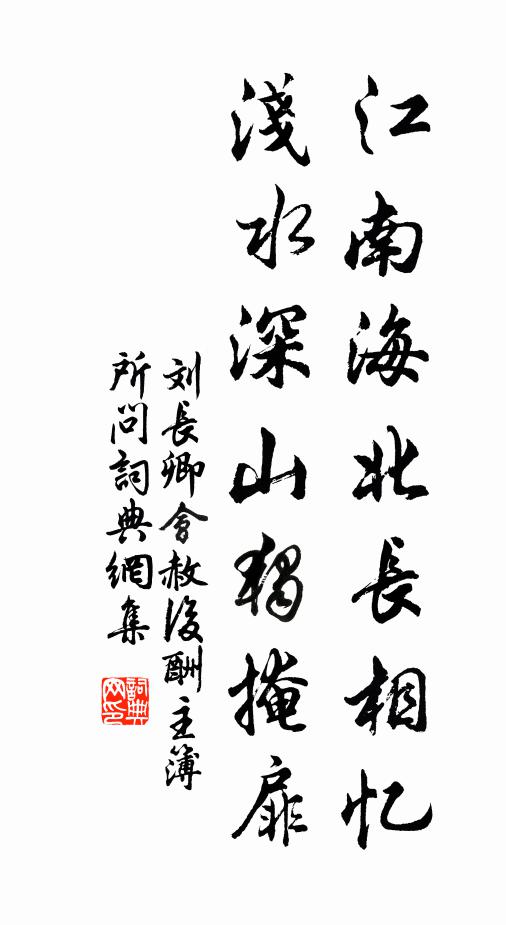 江南海北長相忆
淺水深山獨掩扉
刘長卿會赦後酬主簿
所問詞典網集
詞典
网印